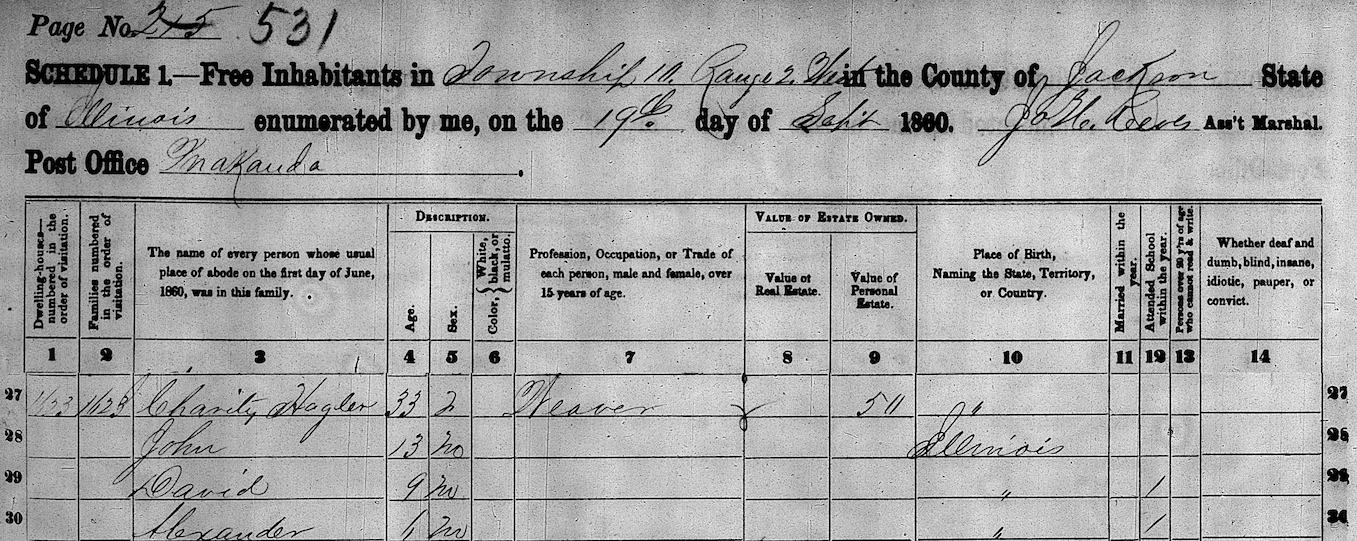 Page No. 215 531
SCHEDULE 1.—Free Inhabitants in Township 10. Range 2. West in the County of Jackson State
of Illinois enumerated by me, on the 19th day of Sept 1860. Ass't Marshal.
Post Office Makanda.
DESCRIPTION. VALUE OF ESTATE OWNED.
Dwelling-houses—numbered in the order of visitation.
Families numbered in the order of visitation.
The name of every person whose usual
place of abode on the first day of June,
1860, was in this family.
Age.
Sex.
Color, {White, black, or mulatto.
Profession, Occupation, or Trade of
each person, male and female, over
15 years of age.
Value of
Real Estate.
Value of
Personal
Estate.
Place of Birth,
Naming the State, Territory,
or Country.
Married within the year.
Attended School within the year.
Persons over 20 y'rs of age who cannot read & write.
Whether deaf and
dumb, blind, insane,
idiotic, pauper, or
convict.
1 2 3 4 5 6 7 8 9 10 11 12 13 14
27 1123 Charity Hagler 33 Weaver 50 " 27
28 John 13 m Illinois 28
29 David 9 m " 1 29
30 Alexander 6 m " 1 30